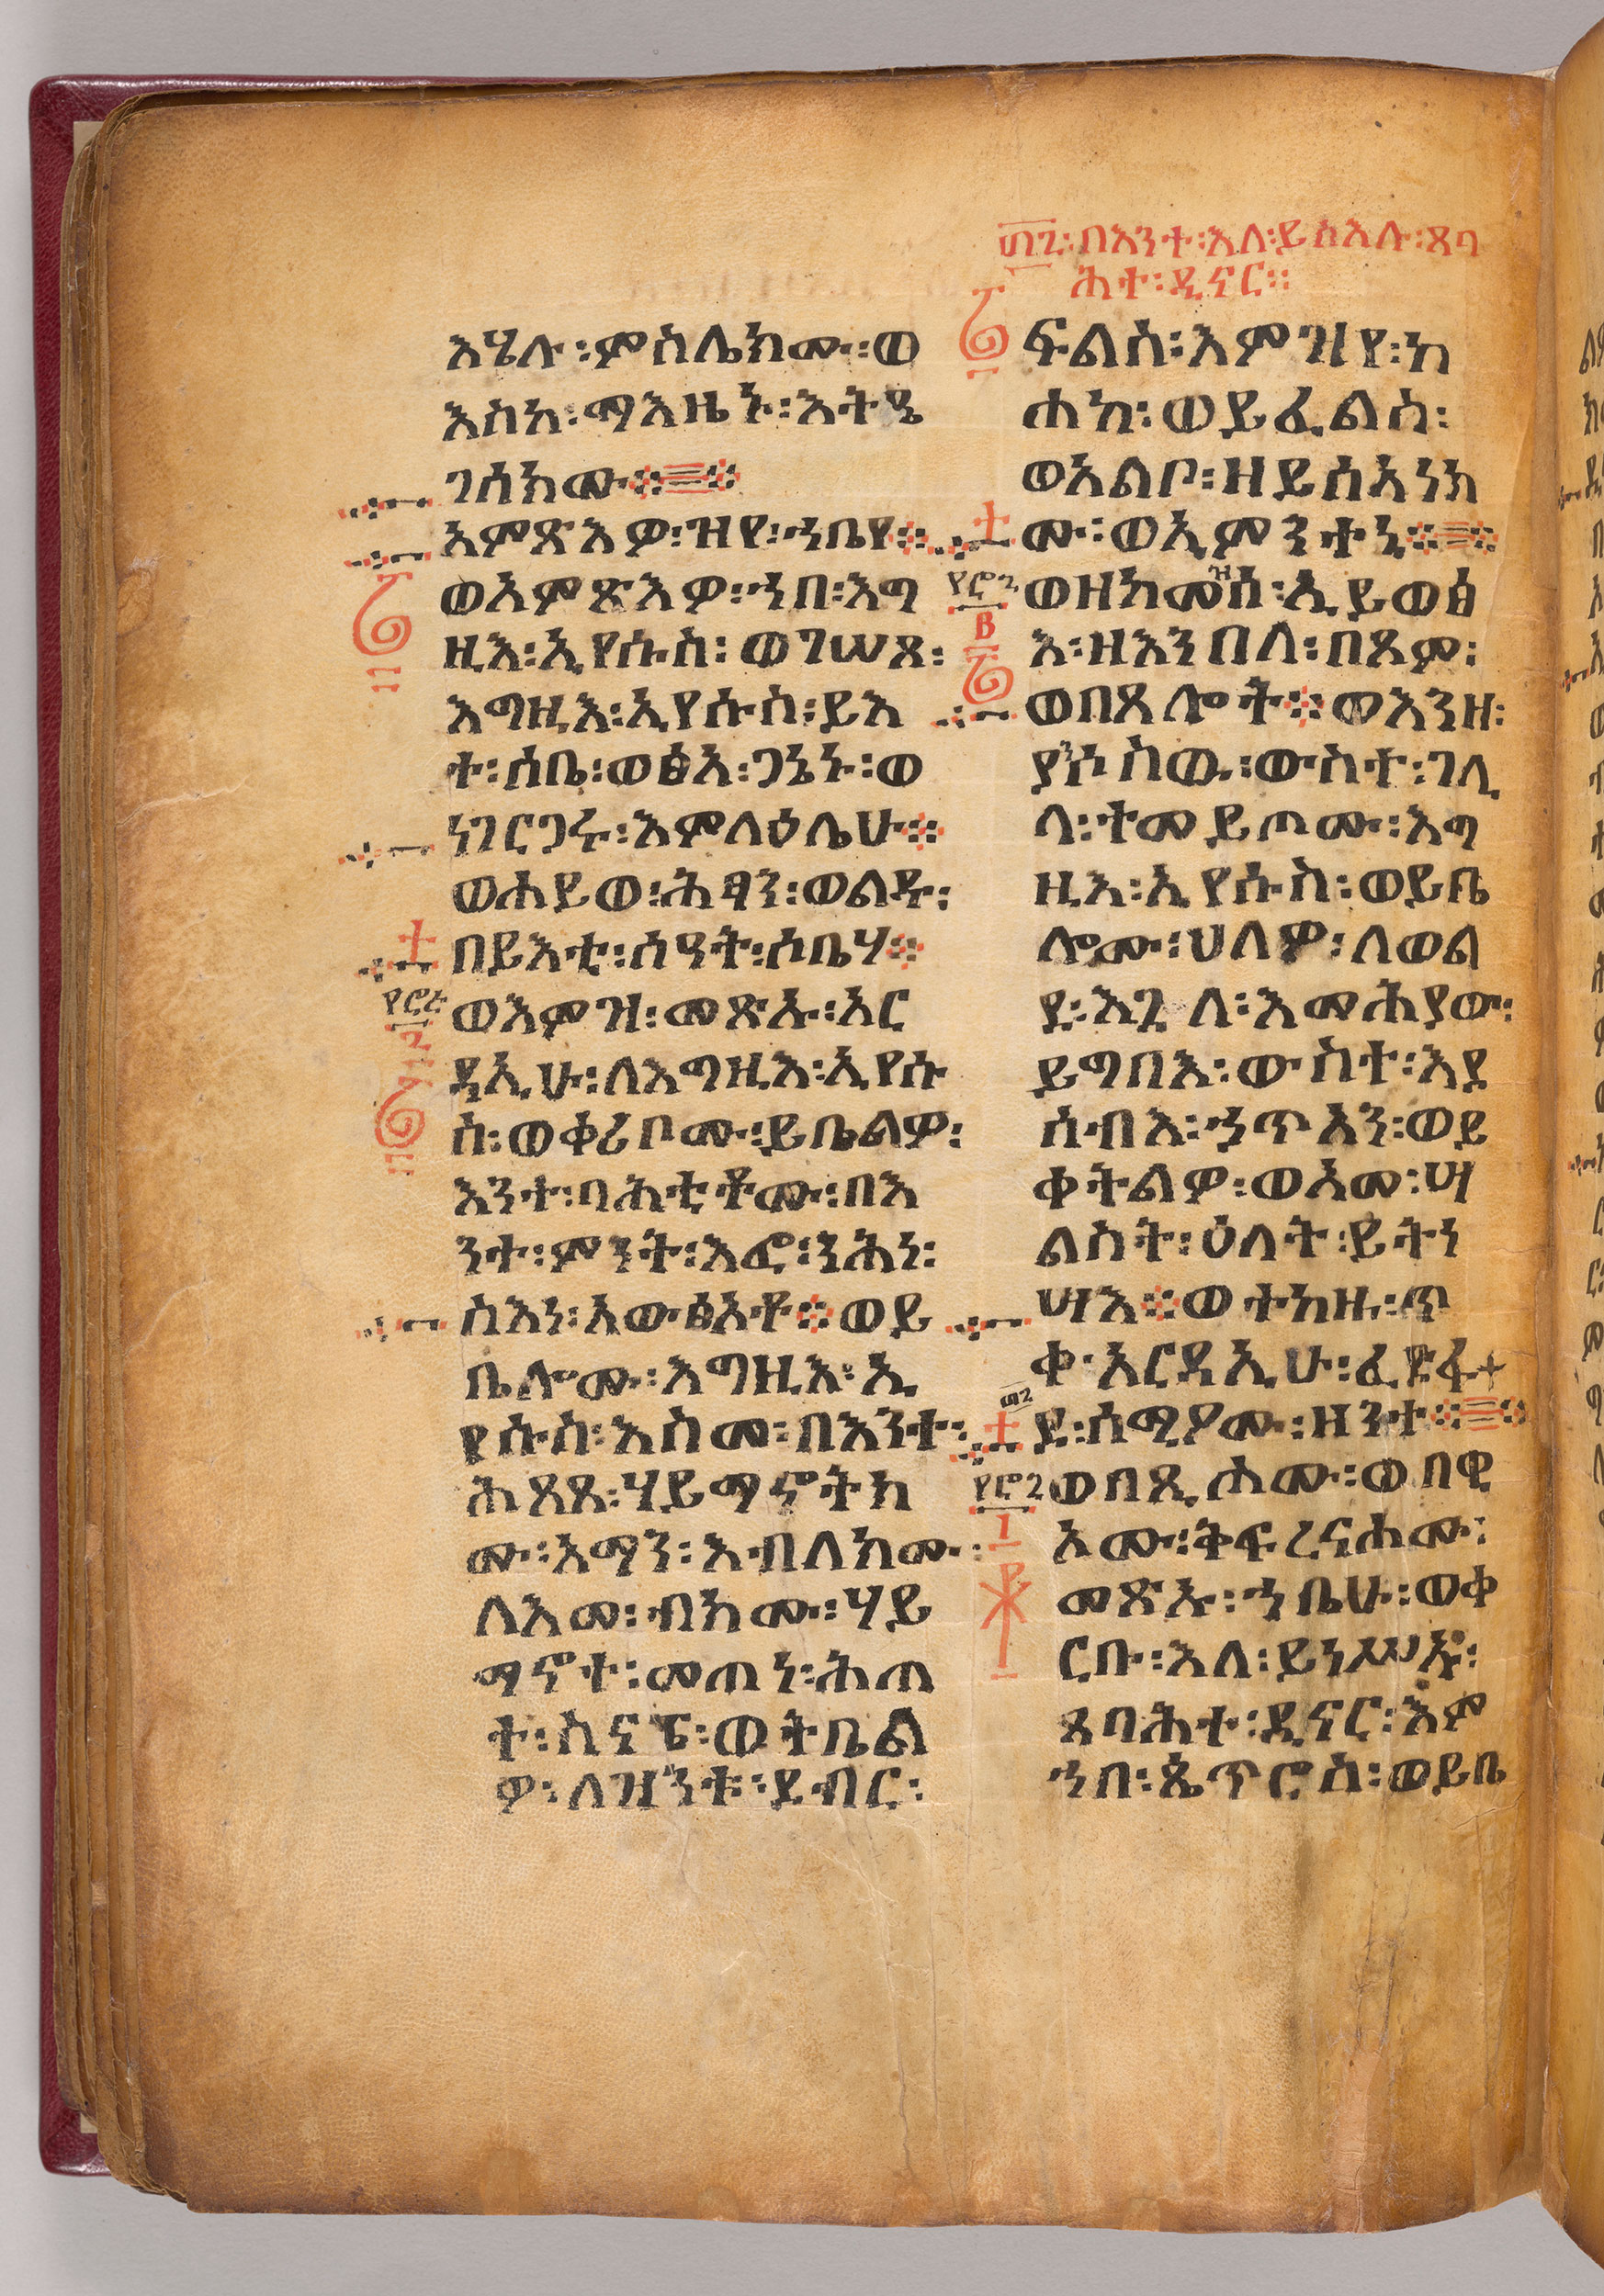 ፴፫፡በእንተ፡እለ፡ይስእሉ፡ጸባ
ሕተ፡ዲናር፡፡
እሄሉ፡ምስሌክሙ፡ወ
እስከ፡ማእዜኑ፡እትዔ
ገሰክሙ
አምጽእዎ፡ዝየ፡ኀቤየ
ወአምጽእዎ፡ኀበ፡እግ
ዚእ፡ኢየሱስ፡ወገሠጸ፡
እግዚእ፡ኢየሱስ፡ይእ
ተ፡ሰቤ፡ወፅአ፡ጋኔኑ፡ወ
ነገርጋሩ፡እምላዕሌሁ
ወሐይወ፡ሕፃን፡ወልዱ፡
በይእቲ፡ሰዓት፡ሶቤሃ
ወእምዝ፡መጽኡ፡አር
ዳኢሁ፡ለእግዚእ፡ኢየሱ
ስ፡ወቀሪቦሙ፡ይቤልዎ፡
እንተ፡ባሕቲቶሙ፡በእ
ንተ፡ምንት፡እፎ፡ንሕነ፡
ስእነ፡አውፅአቶ፡ወይ
ቤሎሙ፡እግዚእ፡ኢ
የሱስ፡እስመ፡በእንተ፡
ሕጸጸ፡ሃይማኖትክ
ሙ፡አማን፡እብለክሙ፡
ለእመ፡ብክሙ፡ሃይ
ማኖተ፡መጠነ፡ሕጠ
ተ፡ስናፔ፡ወትቤል
ዎ፡ለዝንቱ፡ደብር፡
ፍልስ፡እምዝየ፡ከ
ሐከ፡ወይፈልስ፡
ወአልቦ፡ዘይሰአነክ
ሙ፡ወኢምንተኒ
ወዘከመዝሰ፡ኢይወፅ
እ፡ዘእንበለ፡በጾም፡
ወበጸሎት፡ወእንዘ፡
ያንሶስው፡ውስተ፡ገሊ
ላ፡ተመይጦሙ፡እግ
ዚእ፡ኢየሱስ፡ወይቤ
ሎሙ፡ሀለዎ፡ለወል
ደ፡እጓለ፡እመሕያው፡
ይግባእ፡ውስተ፡እደ
ሰብእ፡ኃጥአን፡ወይ
ቀትልዎ፡ወአመ፡ሣ
ልስት፡ዕለት፡ይትነ
ሣእ፡ወተከዙ፡ጥ
ቀ፡አርዳኢሁ፡ፈድፋ
ደ፡ሰሚዖሙ፡ዘንተ
ወበጺሐሙ፡ወበዊ
አሙ፡ቅፍረናሐሙ፡
መጽኡ፡ኀቤሁ፡ወቀ
ርቡ፡እለ፡ይነሥኡ፡
ጸባሕተ፡ዲናር፡እም
ኀበ፡ጴጥሮስ፡ወይቤ